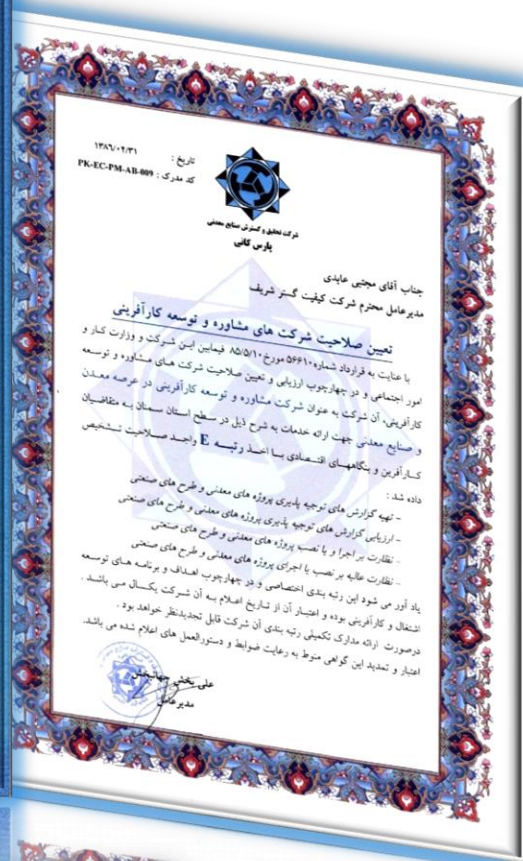 تاریخ : ۱۳۸۶/۰۲/۳۱
کد مدرک : PK-EC-PM-AB-009
شرکت تحقیق و گسترش صنایع معدنی
پارس کانی
جناب آقای مجتبی عابدی
مدیرعامل محترم شرکت کیفیت گستر شریف
تعیین صلاحیت شرکت های مشاوره و توسعه کارآفرینی
با عنایت به قرارداد شماره ۵۶۶۱۰ مورخ ۸۵/۵/۱۰ فیمابین این شرکت و وزارت کار و
امور اجتماعی و در چهارچوب ارزیابی و تعیین صلاحیت شرکت های مشاوره و توسعه
کارآفرینی، آن شرکت به عنوان شرکت مشاوره و توسعه کارآفرینی در عرصه معدن
و صنایع معدنی جهت ارائه خدمات به شرح ذیل در سطح استان سمنان به متقاضیان
کارآفرین و بنگاههای اقتصادی با اخذ رتبه E واجد صلاحیت تشخیص
داده شد :
- تهیه گزارش های توجیه پذیری پروژه های معدنی و طرح های صنعتی
- ارزیابی گزارش های توجیه پذیری پروژه های معدنی و طرح های صنعتی
- نظارت بر اجرا و یا نصب پروژه های معدنی و طرح های صنعتی
- نظارت عالیه بر نصب یا اجرای پروژه های معدنی و طرح های صنعتی
یاد آور می شود این رتبه بندی اختصاصی و در چهارچوب اهداف و برنامه های توسعه
اشتغال و کارآفرینی بوده و اعتبار آن از تاریخ اعلام به آن شرکت یکسال می باشد .
درصورت ارائه مدارک تکمیلی رتبه بندی آن شرکت قابل تجدیدنظر خواهد بود .
اعتبار و تمدید این گواهی منوط به رعایت ضوابط و دستورالعمل های اعلام شده می باشد.
علی بخش جهانبخش
مدیرعامل